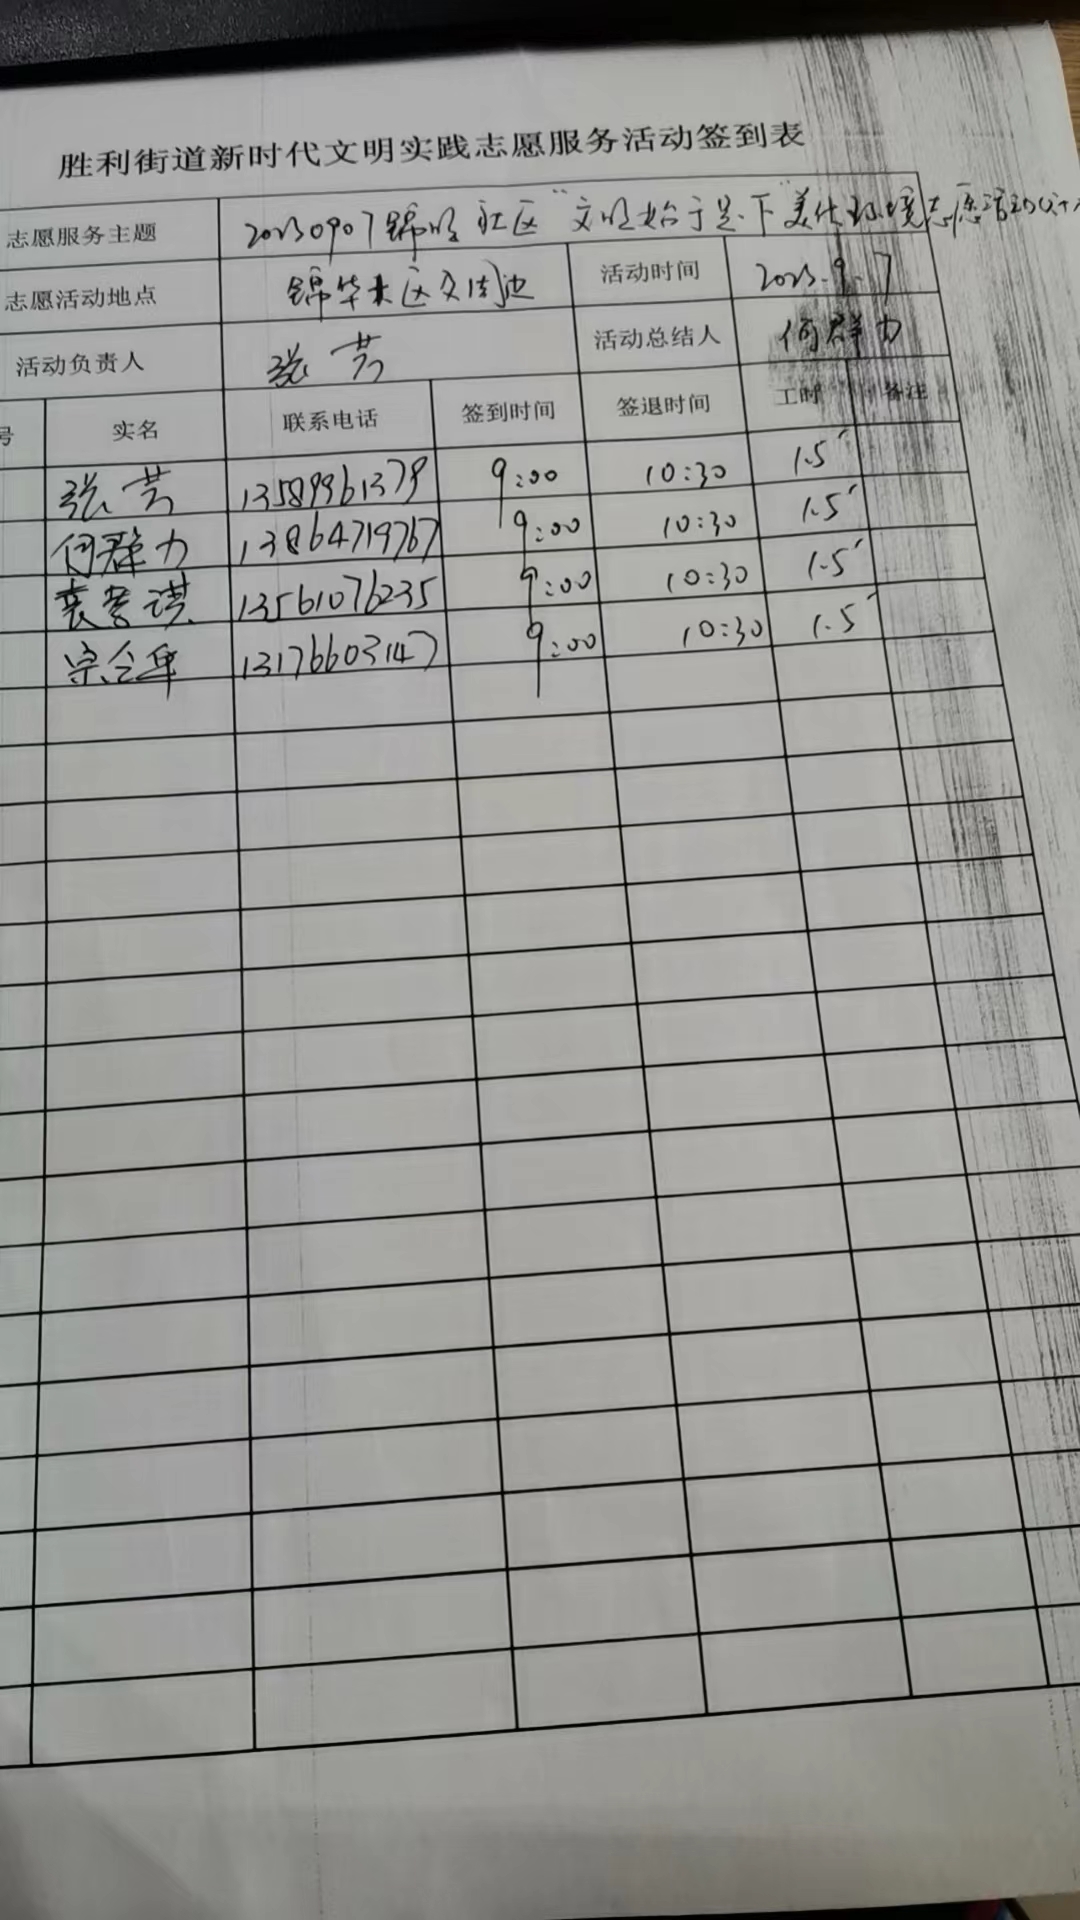 胜利街道新时代文明实践志愿服务活动签到表
志愿服务主题 20230907锦明社区“文明始于足下”美化环境志愿活动
志愿活动地点 锦华 区及周边 活动时间 2023.9.7
活动负责人 张芳 活动总结人 何群力
号 实名 联系电话 签到时间 签退时间 工时 备注
张芳 13589961379 9:00 10:30 1.5
何群力 13864719767 9:00 10:30 1.5
袁 琪 13561076235 9:00 10:30 1.5
宗 13176603147 9:00 10:30 1.5